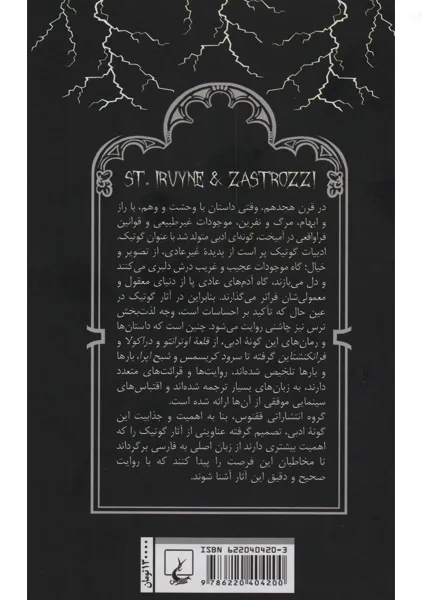 ST. IRVYNE & ZASTROZZI
در قرن هجدهم، وقتی داستان با وحشت و وهم، با راز
و ابهام، مرگ و نفرین، موجودات غیرطبیعی و قوانین
فراواقعی در آمیخت، گونه‌ای ادبی متولد شد با عنوان گوتیک.
ادبیات گوتیک پر است از پدیدهٔ غیرعادی، از تصویر و
خیال؛ گاه موجودات عجیب و غریب درش دلبری می‌کنند
و دل می‌بازند، گاه آدم‌های عادی پا از دنیای معقول و
معمولی‌شان فراتر می‌گذارند. بنابراین در آثار گوتیک در
عین حال که تأکید بر احساسات است، وجه لذت‌بخش
ترس نیز چاشنی روایت می‌شود. چنین است که داستان‌ها
و رمان‌های این گونهٔ ادبی، از قلعهٔ اوترانتو و دراکولا و
فرانکنشتاین گرفته تا سرود کریسمس و شبح اپرا، بارها
و بارها تلخیص شده‌اند، روایت‌ها و قرائت‌های متعدد
دارند، به زبان‌های بسیار ترجمه شده‌اند و اقتباس‌های
سینمایی موفقی از آن‌ها ارائه شده است.
گروه انتشاراتی ققنوس، بنا به اهمیت و جذابیت این
گونهٔ ادبی، تصمیم گرفته عناوینی از آثار گوتیک را که
اهمیت بیشتری دارند از زبان اصلی به فارسی برگرداند
تا مخاطبان این فرصت را پیدا کنند که با روایت
صحیح و دقیق این آثار آشنا شوند.
ISBN 622040420-3
9 786220 404200
۱۳۰۰۰۰ تومان